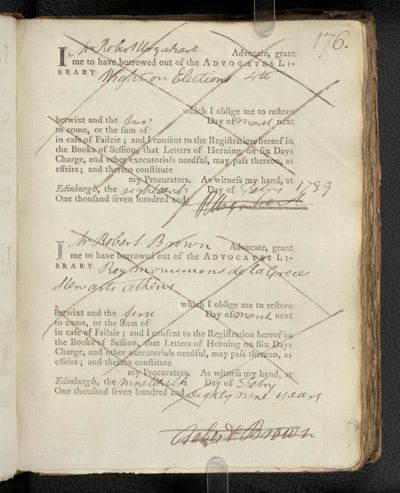 176.
I Mr Robert Urquhart Advocate, grant
me to have borrowed out of the ADVOCATES LI-
BRARY Wight on Elections 4to
which I oblige me to restore
betwixt and the first Day of March next
to come, or the sum of
in case of Failzie; and I consent to the Registration hereof in
the Books of Session, that Letters of Horning on six Days
Charge, and other executorials needful, may pass thereon, as
effeirs; and thereto constitute
my Procurators. As witness my hand, at
Edinburgh, the eighteenth Day of Febry 1789
One thousand seven hundred and
R Urquhart
I Mr Robert Brown Advocate, grant
me to have borrowed out of the ADVOCATES LI-
BRARY Roy monumens de la Grece
Stewarts athens
which I oblige me to restore
betwixt and the first Day of March next
to come, or the Sum of
in case of Failzie; and I consent to the Registration hereof in
the Books of Session, that Letters of Horning on Six Days
Charge, and other executorials needful, may pass thereon, as
effeirs; and thereto constitute
my Procurators. As witness my hand, at
Edinburgh, the nineteenth Day of Febry
One thousand seven hundred and eighty nine years
Robert Brown